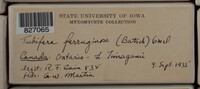 STATE UNIVERSITY OF IOWA
MYXOMYCETE COLLECTION
827065
Tubifera ferruginosa (Batsch) Gmel
Canada: Ontario - L. Timagami
Legit: R. F. Cain 838 5 Sept. 1935
Det: G. W. Martin